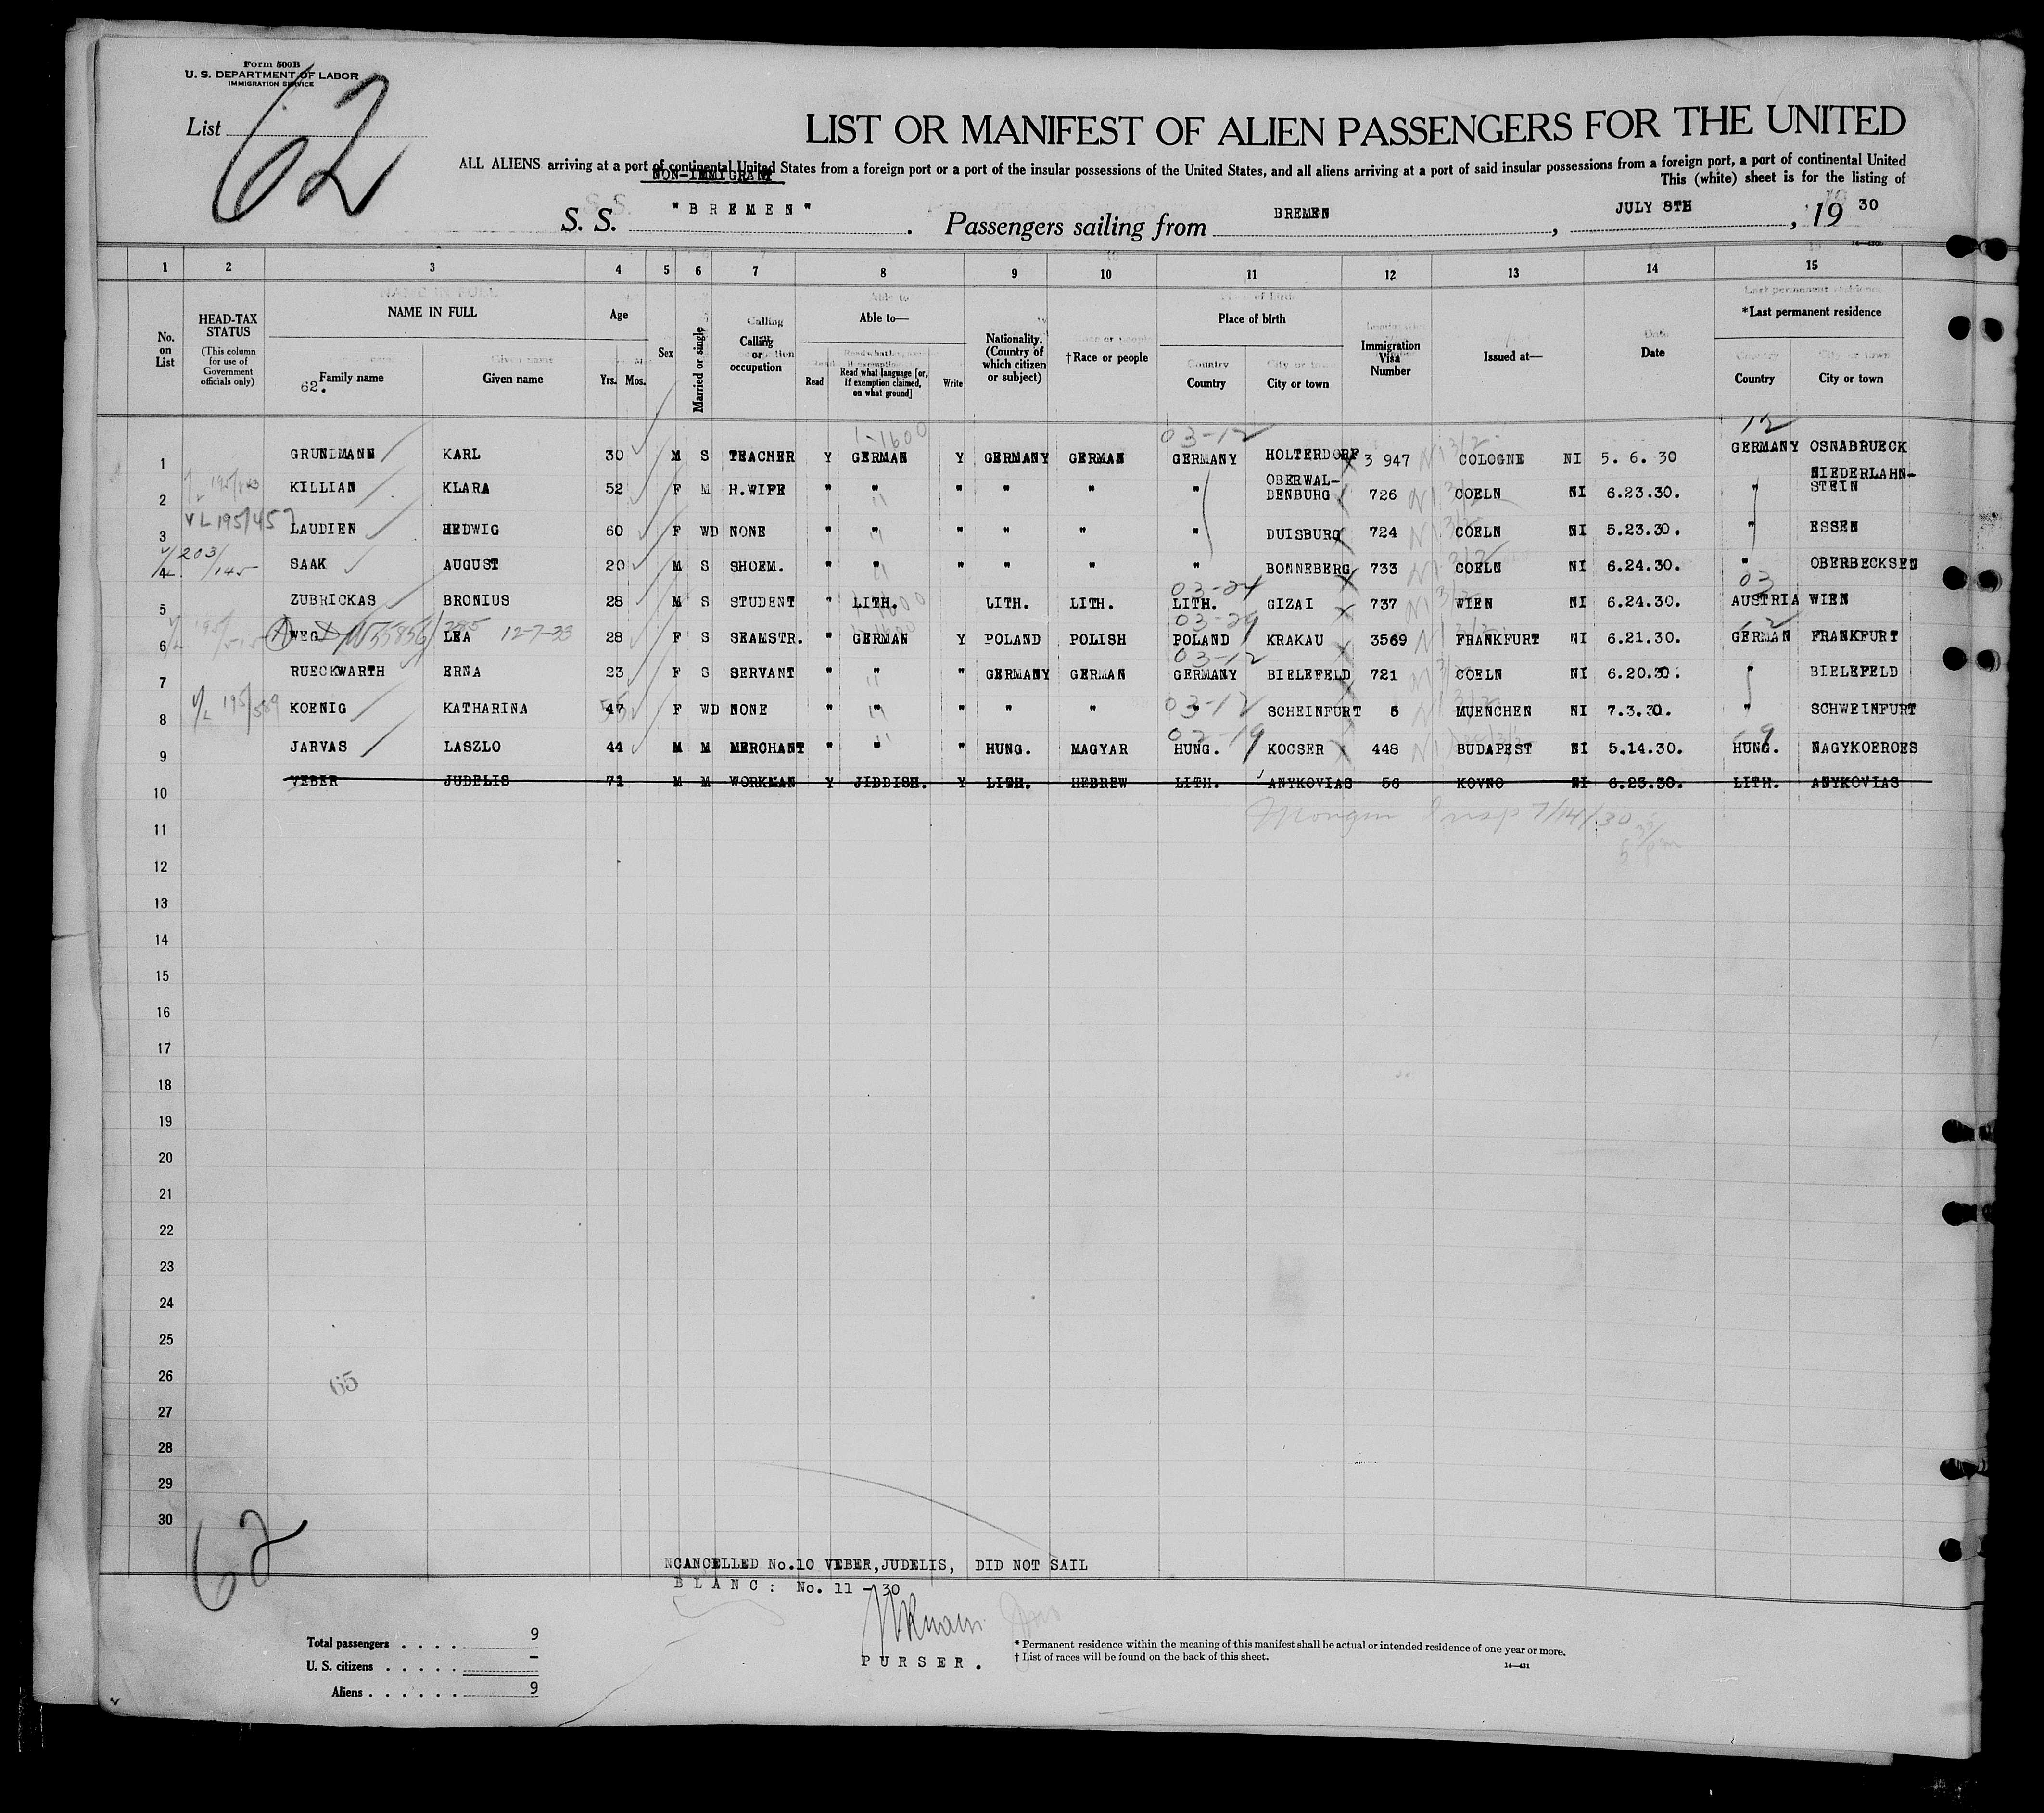 Form 500B
U. S. DEPARTMENT OF LABOR
IMMIGRATION SERVICE
List 62
LIST OR MANIFEST OF ALIEN PASSENGERS FOR THE UNITED
ALL ALIENS arriving at a port of continental United States from a foreign port or a port of the insular possessions of the United States, and all aliens arriving at a port of said insular possessions from a foreign port, a port of continental United
NON-IMMIGRANT
This (white) sheet is for the listing of
S. S. "BREMEN". Passengers sailing from BREMEN, JULY 8TH, 1930
1 2 3 4 5 6 7 8 9 10 11 12 13 14 15
No. on List
HEAD-TAX STATUS
(This column for use of Government officials only)
NAME IN FULL
62. Family name
Given name
Age
Yrs. Mos.
Sex
Married or single
Calling or occupation
Able to—
Read
Read what language [or, if exemption claimed, on what ground]
Write
Nationality. (Country of which citizen or subject)
†Race or people
Place of birth
Country
City or town
Immigration Visa Number
Issued at—
Date
*Last permanent residence
Country
City or town
1 GRUNDMANN KARL 30 M S TEACHER Y GERMAN Y GERMANY GERMAN GERMANY HOLTERDORF 3 947 COLOGNE NI 5. 6. 30 GERMANY OSNABRUECK
2 KILLIAN KLARA 52 F M H.WIFE " " " " " " OBERWALDENBURG 726 COELN NI 6.23.30. " NIEDERLAHN-STEIN
VL 195/457
3 LAUDIEN HEDWIG 60 F WD NONE " " " " " " DUISBURG 724 COELN NI 5.23.30. " ESSEN
203/145
4 SAAK AUGUST 20 M S SHOEM. " " " " " " BONNEBERG 733 COELN NI 6.24.30. " OBERBECKSEN
5 ZUBRICKAS BRONIUS 28 M S STUDENT " LITH. LITH. LITH. LITH. GIZAI 737 WIEN NI 6.24.30. AUSTRIA WIEN
6 WEG LEA 12-7-33 28 F S SEAMSTR. " GERMAN Y POLAND POLISH POLAND KRAKAU 3569 FRANKFURT NI 6.21.30. GERMAN FRANKFURT
7 RUECKWARTH ERNA 23 F S SERVANT " " " GERMANY GERMAN GERMANY BIELEFELD 721 COELN NI 6.20.30. " BIELEFELD
8 KOENIG KATHARINA 47 F WD NONE " " " " " " SCHEINFURT MUENCHEN NI 7.3.30. " SCHWEINFURT
9 JARVAS LASZLO 44 M M MERCHANT " " " HUNG. MAGYAR HUNG. KOCSER 448 BUDAPEST NI 5.14.30. HUNG. NAGYKOEROES
10 VEBER JUDELIS 71 M M WORKMAN Y JIDDISH. Y LITH. HEBREW LITH. ANYKOVIAS 56 KOVNO NI 6.23.30. LITH. ANYKOVIAS
11 7/14/30
12
13
14
15
16
17
18
19
20
21
22
23
24
25
26
65
27
28
29
30
62
NCANCELLED No.10 VEBER,JUDELIS, DID NOT SAIL
BLANC: No. 11 - 30
PURSER.
Total passengers . . . . 9
U. S. citizens . . . . . -
Aliens . . . . . . 9
* Permanent residence within the meaning of this manifest shall be actual or intended residence of one year or more.
† List of races will be found on the back of this sheet.
14—431